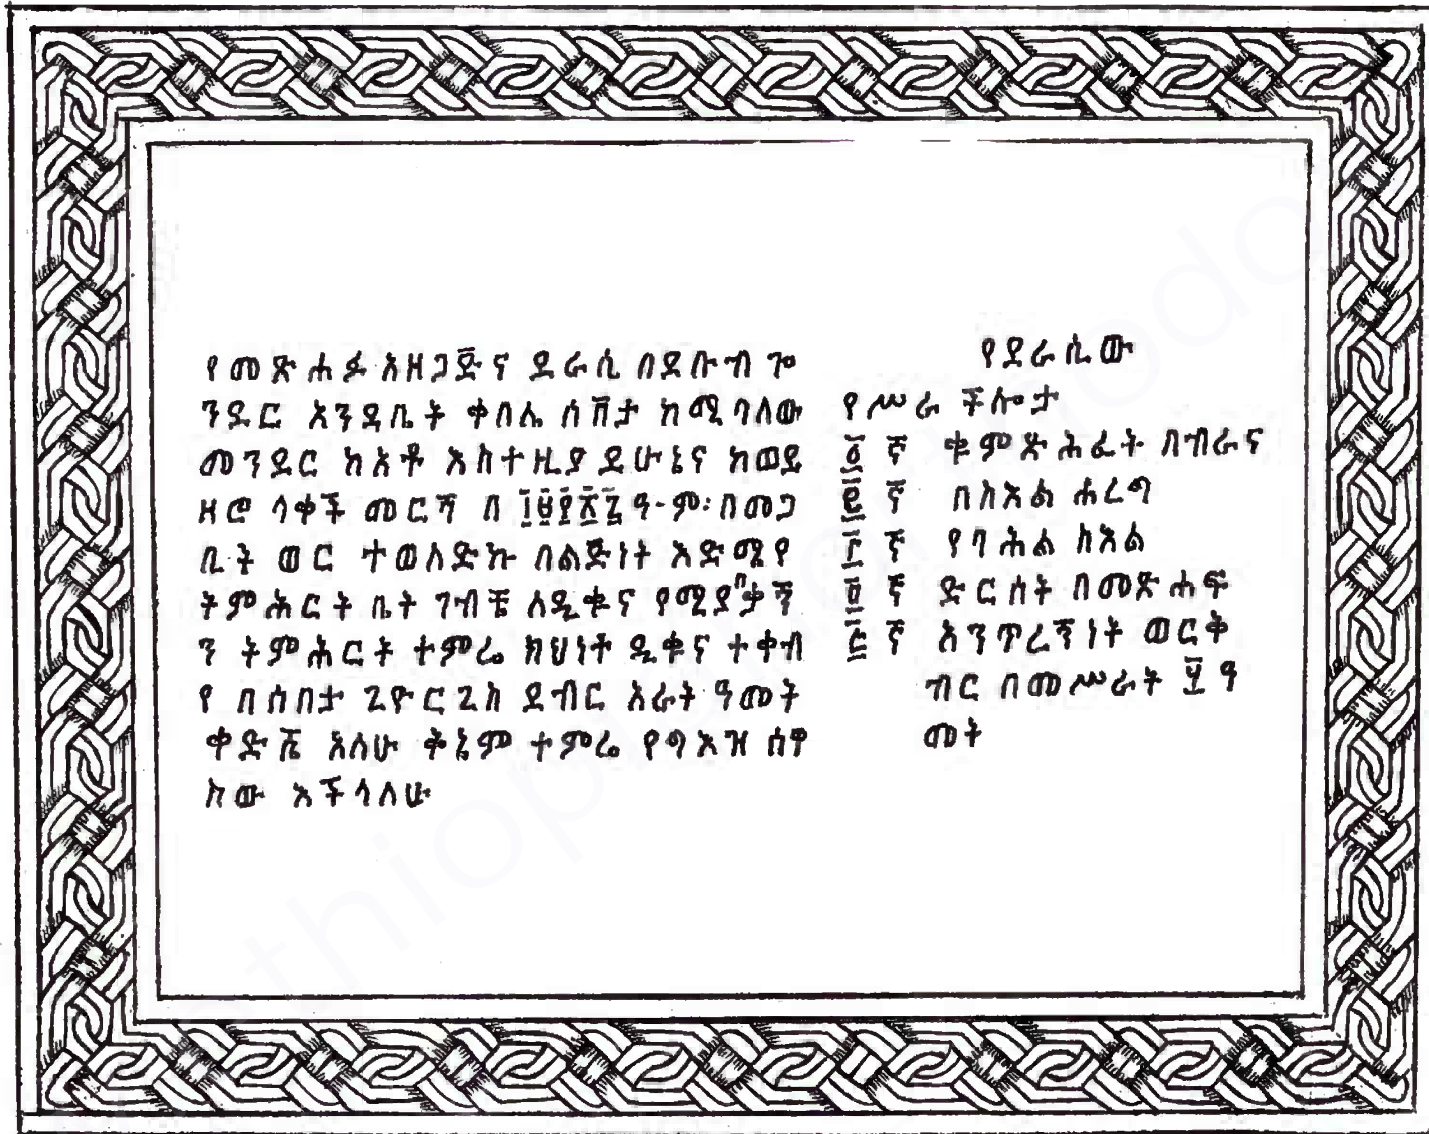 የመጽሐፉ አዘጋጅና ደራሲ በደቡብ ጎ
ንደር እንዳቤት ቀበሌ ሰሽታ ከሚባለው
መንደር ከአቶ እስተዚያ ደሁኔና ከወይ
ዘሮ ጎቀች መርሻ በ ፲፱፻፳፯ ዓ.ም፡በመጋ
ቢት ወር ተወለድኩ በልጅነት እድሜየ
ትምሕርት ቤት ገብቼ ለዲቁና የሚያበቃኝ
ን ትምሕርት ተምሬ ክህነት ዲቁና ተቀብ
የ በሰበታ ጊዮርጊስ ደብር አራት ዓመት
ቀድሼ አለሁ ቅኔም ተምሬ የግእዝ ሰዋ
ስው እችላለሁ
የደራሲው
የሥራ ችሎታ
፩ ኛ ቁምጽሕፈት በብራና
፪ ኛ በስእል ሐረግ
፫ ኛ የባሕል ስእል
፬ ኛ ድርሰት በመጽሐፍ
፭ ኛ እንጥረኝነት ወርቅ
ብር በመሥራት ፶ ዓ
መት